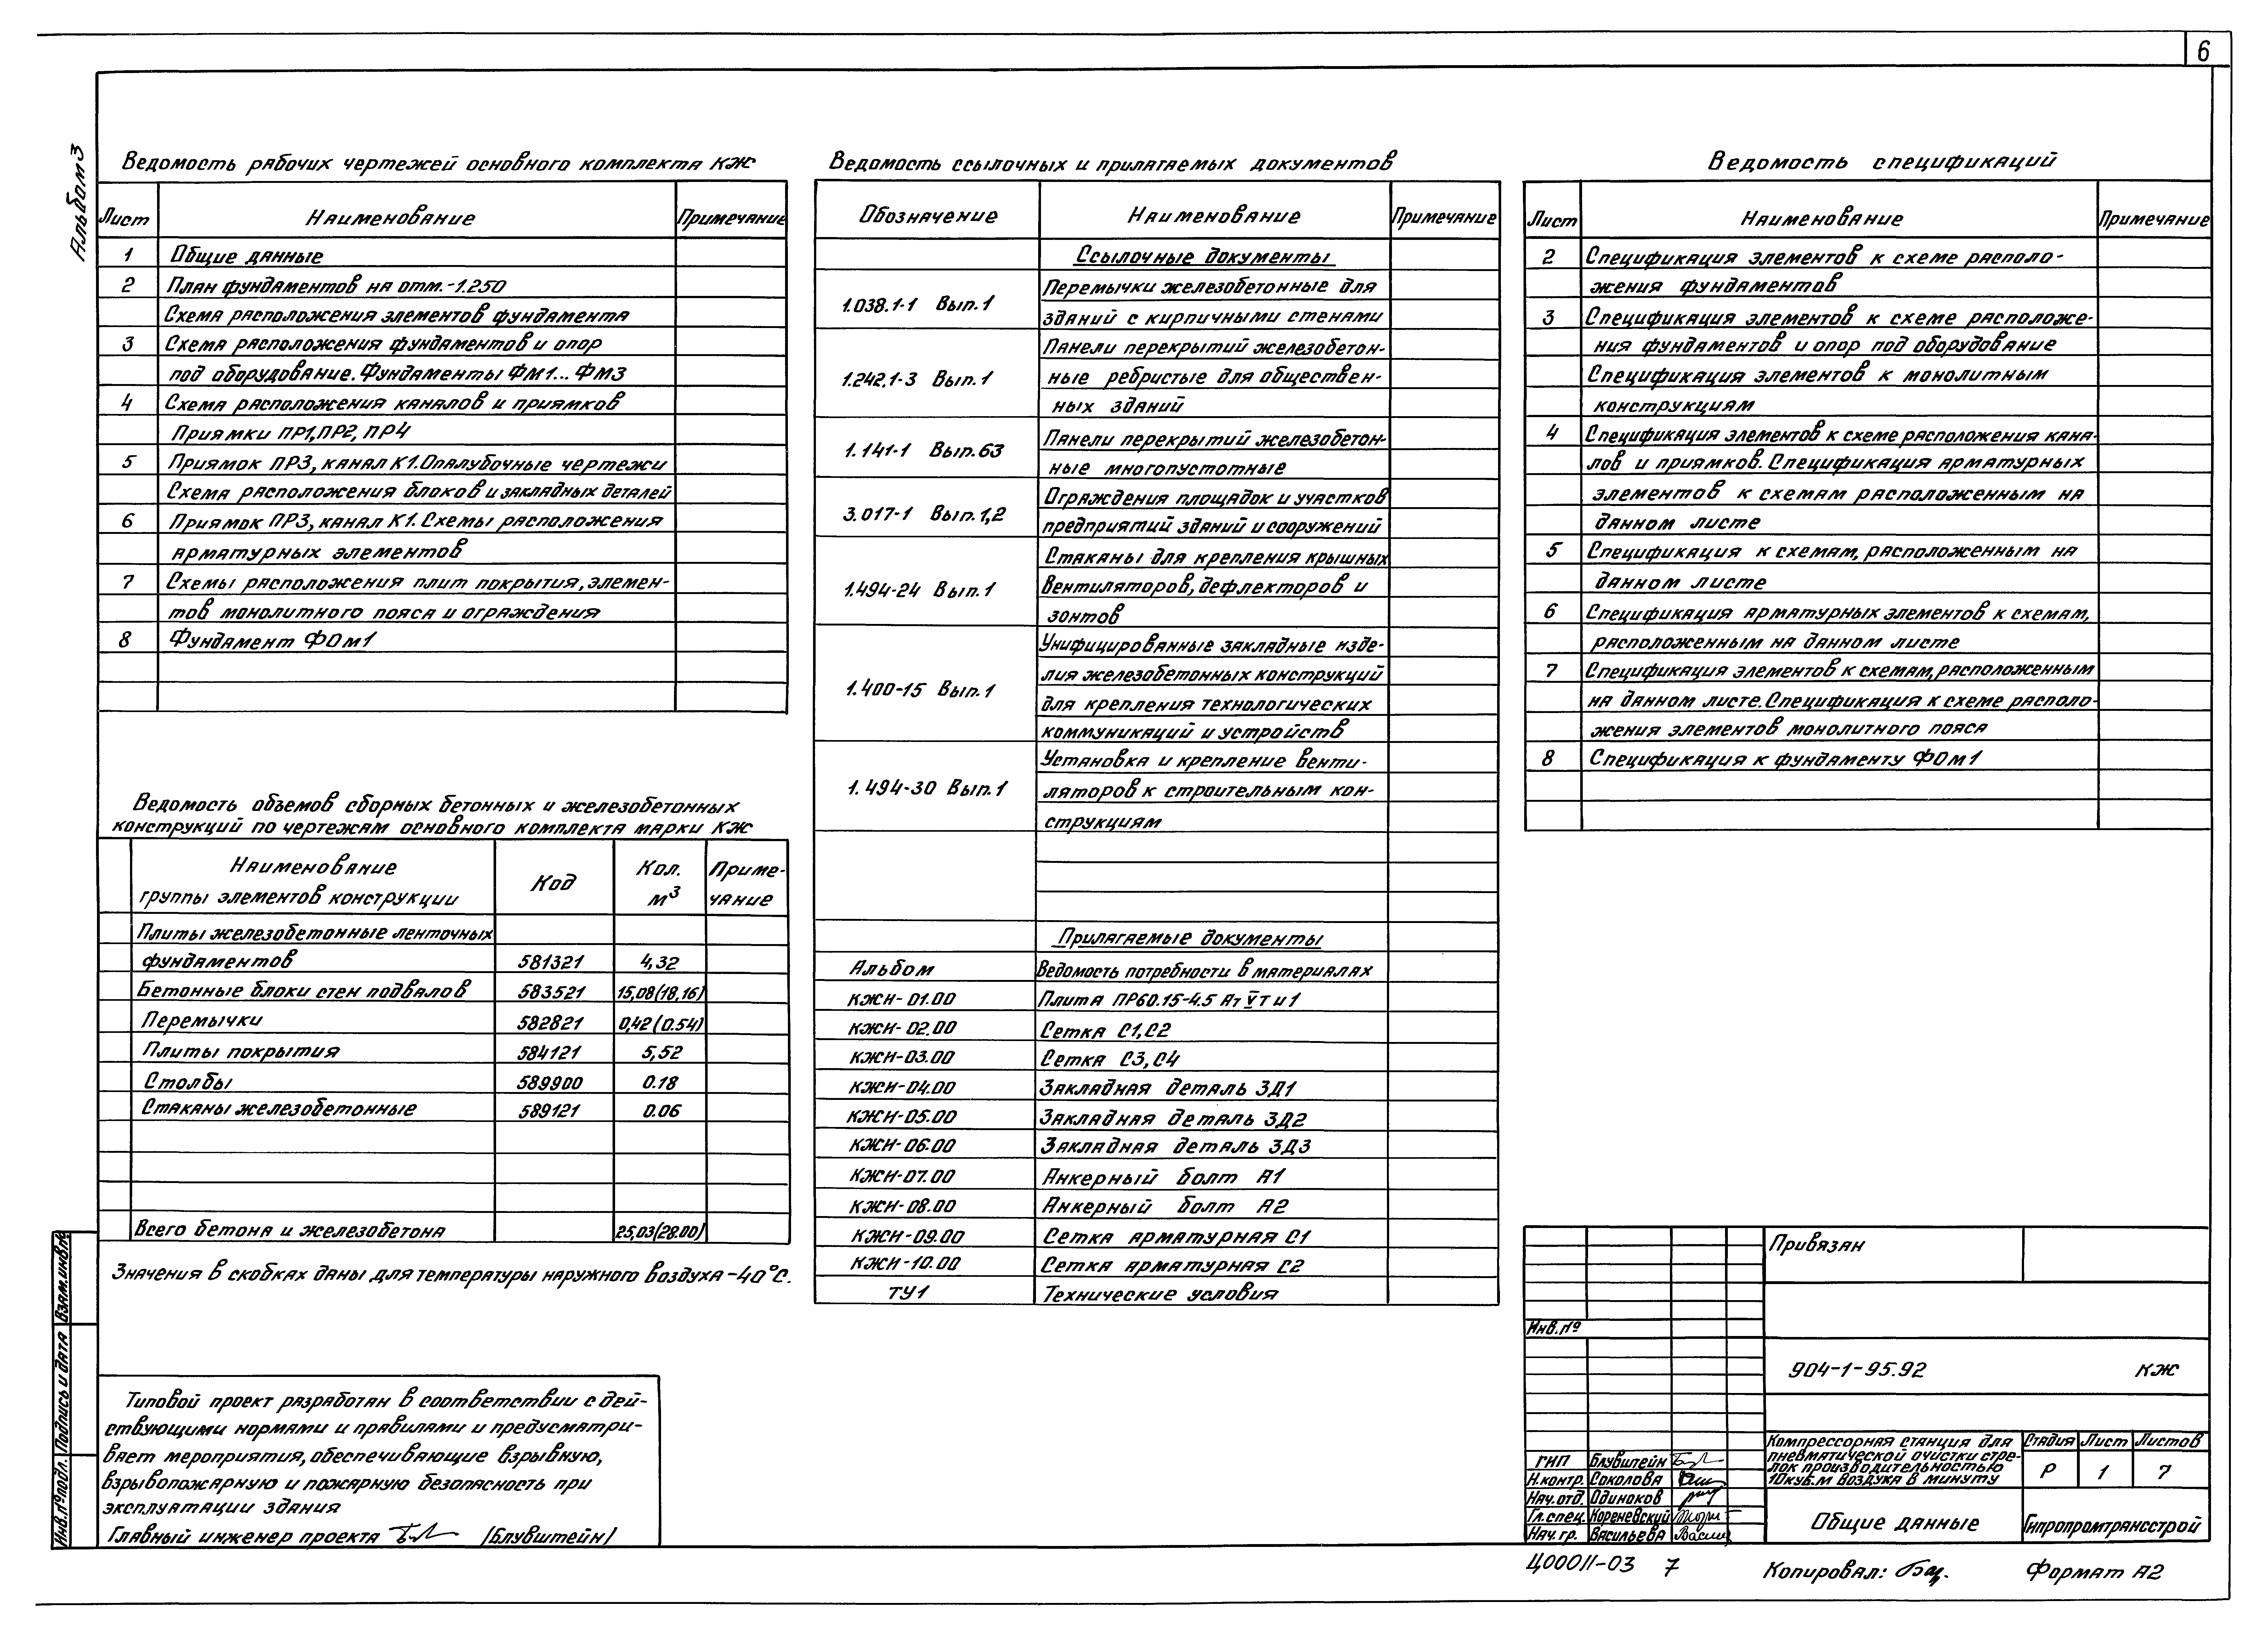 6
Альбом 3
Ведомость рабочих чертежей основного комплекта КЖ
Лист Наименование Примечание
1 Общие данные
2 План фундаментов на отм.-1.250
Схема расположения элементов фундамента
3 Схема расположения фундаментов и опор
под оборудование. Фундаменты ФМ1... ФМ3
4 Схема расположения каналов и приямков
Приямки ПР1, ПР2, ПР4
5 Приямок ПР3, канал К1. Опалубочные чертежи
Схема расположения блоков и закладных деталей
6 Приямок ПР3, канал К1. Схемы расположения
арматурных элементов
7 Схемы расположения плит покрытия, элемен-
тов монолитного пояса и ограждения
8 Фундамент ФОм1
Ведомость объемов сборных бетонных и железобетонных
конструкций по чертежам основного комплекта марки КЖ
Наименование
группы элементов конструкции Код Кол. м3 Приме-
чание
Плиты железобетонные ленточных
фундаментов 581321 4,32
Бетонные блоки стен подвалов 583521 15,08(18,16)
Перемычки 582821 0,42(0.54)
Плиты покрытия 584121 5,52
Столбы 589900 0.18
Стаканы железобетонные 589121 0.06
Всего бетона и железобетона 25,03(28.00)
Значения в скобках даны для температуры наружного воздуха -40°С.
Типовой проект разработан в соответствии с дей-
ствующими нормами и правилами и предусматри-
вает мероприятия, обеспечивающие взрывную,
взрывопожарную и пожарную безопасность при
эксплуатации здания
Главный инженер проекта (Блувштейн)
Ведомость ссылочных и прилагаемых документов
Обозначение Наименование Примечание
Ссылочные документы
1.038.1-1 Вып.1 Перемычки железобетонные для
зданий с кирпичными стенами
1.242.1-3 Вып.1 Панели перекрытий железобетон-
ные ребристые для обществен-
ных зданий
1.141-1 Вып.63 Панели перекрытий железобетон-
ные многопустотные
3.017-1 Вып.1,2 Ограждения площадок и участков
предприятий зданий и сооружений
1.494-24 Вып.1 Стаканы для крепления крышных
вентиляторов, дефлекторов и
зонтов
1.400-15 Вып.1 Унифицированные закладные изде-
лия железобетонных конструкций
для крепления технологических
коммуникаций и устройств
1.494-30 Вып.1 Установка и крепление венти-
ляторов к строительным кон-
струкциям
Прилагаемые документы
Альбом Ведомость потребности в материалах
КЖИ-01.00 Плита ПР60.15-4.5 Ат V Т и 1
КЖИ-02.00 Сетка С1, С2
КЖИ-03.00 Сетка С3, С4
КЖИ-04.00 Закладная деталь ЗД1
КЖИ-05.00 Закладная деталь ЗД2
КЖИ-06.00 Закладная деталь ЗД3
КЖИ-07.00 Анкерный болт А1
КЖИ-08.00 Анкерный болт А2
КЖИ-09.00 Сетка арматурная С1
КЖИ-10.00 Сетка арматурная С2
ТУ1 Технические условия
Ведомость спецификаций
Лист Наименование Примечание
2 Спецификация элементов к схеме располо-
жения фундаментов
3 Спецификация элементов к схеме расположе-
ния фундаментов и опор под оборудование
Спецификация элементов к монолитным
конструкциям
4 Спецификация элементов к схеме расположения кана-
лов и приямков. Спецификация арматурных
элементов к схемам расположенным на
данном листе
5 Спецификация к схемам, расположенным на
данном листе
6 Спецификация арматурных элементов к схемам,
расположенным на данном листе
7 Спецификация элементов к схемам, расположенным
на данном листе. Спецификация к схеме располо-
жения элементов монолитного пояса
8 Спецификация к фундаменту ФОм1
Привязан
Инв.№
904-1-95.92 КЖ
ГИП Блувштейн
Н.контр. Соколова
Нач.отд. Одиноков
Гл.спец. Кореневский
Нач.гр. Васильева
Компрессорная станция для
пневматической очистки стре-
лок производительностью
10куб.м воздуха в минуту
Стадия Лист Листов
Р 1 7
Общие данные
Гипропромтрансстрой
Ц00011-03 7
Копировал:
Формат А2
Инв.№подл. Подпись и дата Взам.инв.№